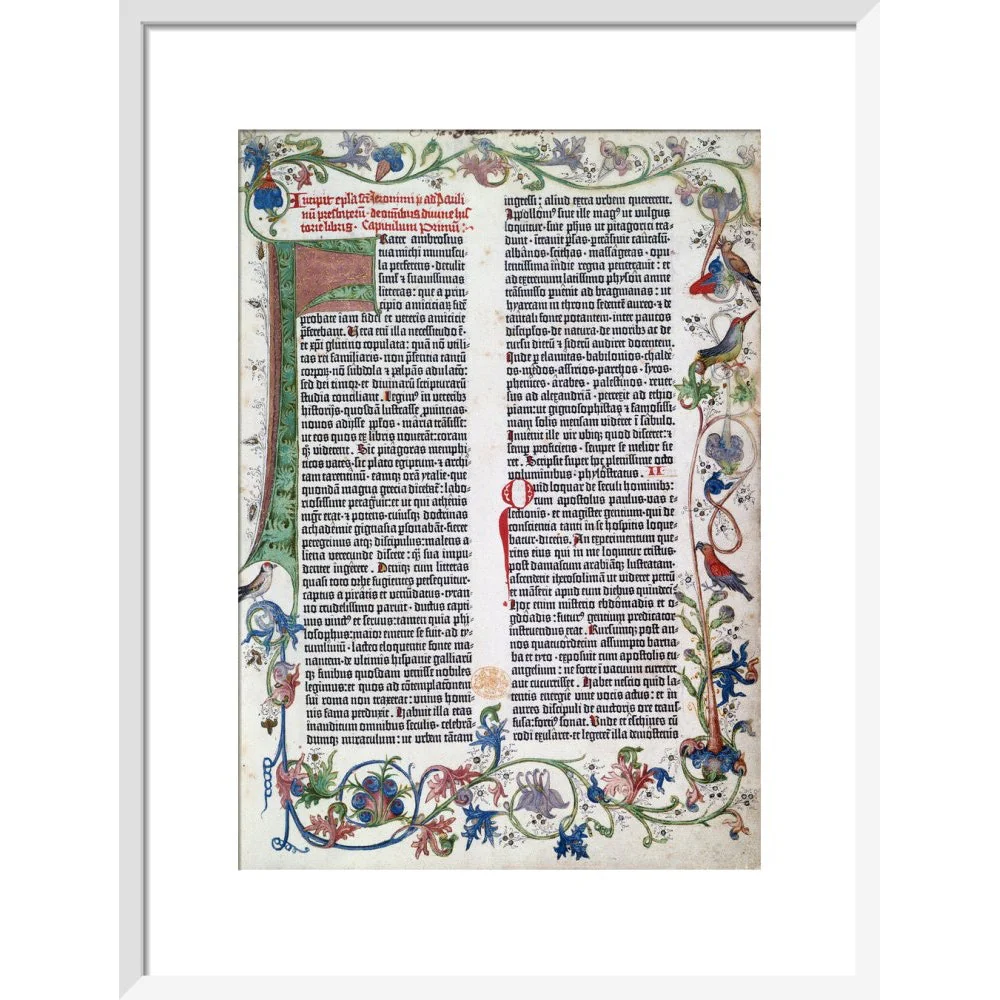 Incipit epl̄a sc̄i Jeronimi p̄ ad Pauli
nū presbiterū · de om̄ibus diuine his
torie libris · Capitulum Primū :
Frater ambrosius
tua michi munuscu
la preferens · detulit
simꝉ ⁊ suauissimas
litteras : que a prin-
cipio amiciciaꝝ fidē
probate iam fidei et veteris amicicie
p̄ferebant . Vera em̄ illa necessitudo ē ·
et xp̄i glutino copulata : quā nō vtili-
tas rei familiaris · non p̄sentia tantū
corpoꝝ · nō subdola ⁊ palpās adulatō :
sed dei timor · et diuinaꝝ scripturarū
studia conciliant . Legimꝰ in veteribs
historijs · quosdā lustrasse ꝓuincias ·
nouos adijsse ppl̄os · maria trāsisse :
ut eos quos ex libris nouerāt : coram
qꝫ viderent . Sic pitagoras memphi
ticos vates · sic plato egiptum · ⁊ archi
tam tarentinū · eamqꝫ orā ytalie · que
quondā magna grecia dicebat᷑ : labo-
riosissime peragiuit : et ut qui athenis
mgr̄ erat · ⁊ potens · cuiusqꝫ doctrinas
achademie gignasia ꝑsonabāt · fieret
peregrinus atqꝫ discipulus : malens a
liena verecunde discere : qꝫ sua impu-
denter ingērere . Deniqꝫ cum litteras
quasi toto orbe fugientes persequitur ·
captus a piratis et venūdatus · tyran
no crudelissimo paruit · ductus capti-
nus vinctꝰ et seruus : tamen quia phi
losophus : maior emente se fuit · ad ti-
tumliuiū · lacteo eloquentie fonte ma-
nantem · de vltimis hispanie galliarū
qꝫ finibus quosdam venisse nobiles
legimus : et quos ad cōtemplatōnem
sui roma non traxerat : vnius homi-
nis fama perduxit . Habuit illa etas
inauditum omnibus seculis · celebrā-
dumqꝫ miraculum : ut vrbem tātam
ingressi : aliud extra vrbem quererent .
Appollonꝰ siue ille magꝰ ut vulgus
loquitur · siue phūs ut pitagorici tra
dunt · ītrauit ꝑsas · ꝑtrāsiuit caucasū ·
albānos · scithas · massagetas · opu
lentissima indie regna penetrauit : et
ad extremum latissimo physon amne
trāsmisso ꝑuenit ad bragmanas : ut
hyarcam in throno sedentē aureo · ⁊ de
tantali fonte potantem · inter paucos
discipl̄os · de natura · de moribꝫ ac de
cursu dierū ⁊ siderū audiret docentem .
Inde ꝑ elamitas · babilonios · chalde
os · medos · assirios · parthos · syros ·
phenices · ārabes · palestinos · reuer
sus ad alexandriā · perrexit ad ethio
piam : ut gignosophistas ⁊ famosissi
mam solis mensam videret ī sabulo .
Inuenit ille vir vbiqꝫ quod disceret : ⁊
semꝑ proficiens · semper se melior fie
ret . Scripsit super hoc plenissime octo
voluminibus · phylostratus . II
Quid loquar de seculi hominibꝫ :
cum apostolus paulus · vas e-
lectionis · et magister gentium · qui de
conscientia tanti in se hospitis loque-
batur · dicens . An experimentum que
ritis eius qui in me loquitur cristus ·
post damascum arabiāqꝫ lustratam ·
ascenderit iherosolimā ut videret petrū
et māserit apud eum diebus quindecī .
Hoc enim misterio ebdomadis et o-
gdoadis : futurꝰ gentium predicator
instruendus erat . Rursumqꝫ post an
nos quatuordecim assumpto barna
ba et tyto · exposuit cum apostolis eu
angelium : ne forte ī vacuum curreret
aut cucurrisset . Habet nescio quid la
tentis energie viue vocis actus : et in
aures discipuli de auctoris ore trans
fusa : fortiꝰ sonat . Unde et eschines cū
rodi exularet · et legeretur illa demostenis